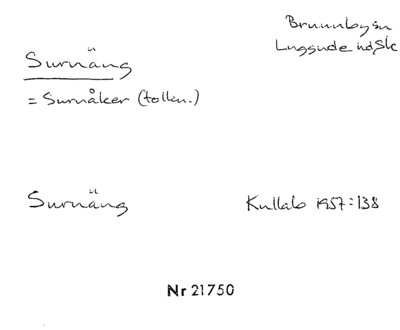 Brunnby sn
Luggude hd, Sk
Surnäng
= Surnåker (tolkn.)
Surnäng
Kullabo 1957:138
Nr 21750